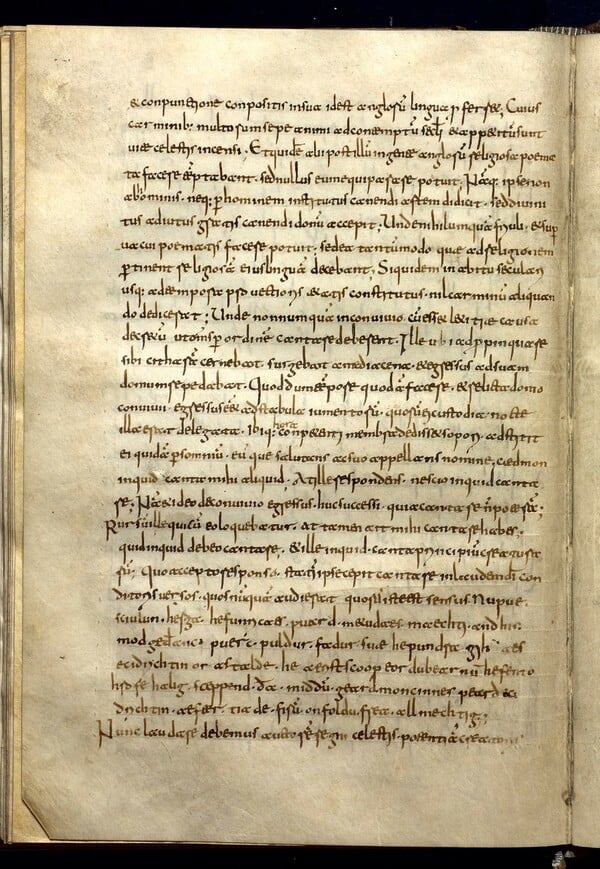 & conpunctione conpositis in sua id est anglosū lingua proferret, Cuius
carminib; multorum sepe animi ad contemptū sectł & appetitū sunt
vitae celestis incensi. Et quidē alii post illū in gente anglorū religiosa poema
ta facere tēptabant. sed nullus eum equiparare potuit. Nāq: ipse non
ab hominis. neq; ꝑ hominem institutus canendi artem didicit. sed divini
tus adiutus gratis canendi donū accepit; Unde nihil umquā frivoli. & sup
vacui poematis facere potuit. sed ea tantūmodo quae ad religionem
ꝑtinent religiosā eius linguā decebant; Siquidem in abitu seculari
usq: ad tempora provectioris aetatis constitutus. nil carminū aliquan
do dedicerat; Unde nonnumquā in convivio. cū esset laetitiae causa
decretū ut omnes ꝑ ordinē cantare deberent. Ille ubi adpropinquare
sibi citharā cernebat. surgebat a media cena. & egressus ad suam
domum repedabat. Quod dum tēpore quodā faceret. & relicta domo
convivii. egressus eēt ad stabula iumentorū. quorū ei custodia nocte
illa erat delegata. Ibiq; hora conpetenti membra dedisset sopori. adstitit
ei quidā ꝑ somniū. eū que salutans ac suo appellans nomine, cedmon
inquid canta mihi aliquid. At ille respondens. nescio inquid canta
re; Nā & ideo de convivio egressus huc successi. quia cantare n̄ poterā;
Rursū ille qui cū eo loquebatur. at tamen ait mihi cantare habes.
quid inquid debeo cantare. & ille inquid. canta principiū creatura
rū. Quo accepto responso. statī ipse cepit cantare in laudem dī con
ditoris versos. quos nūquā audierat quorū iste est sensus. Nu pue
sciulun. herga. hefunricaes. puard. metudaes. maechti. and his
modgedanc. puerc. puldur. fadur. sue he pundra
ecidrichtin or astalde. he aerist scoop eordu bearnū hefen to
hrofe halig. sceppend. da. middū. geard moncinnes peard eci
drichtin. aefter. tiade. firū. on foldu. frea. allmechtig;
Nunc laudare debemus auctorē regni celestis. potentiā